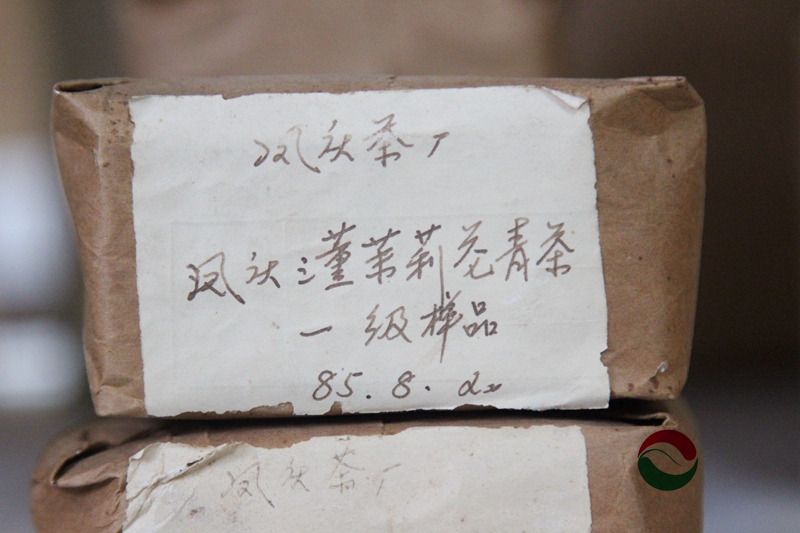 凤庆茶厂
凤庆三薰茉莉花青茶
一级样品
85.8.
凤庆茶厂